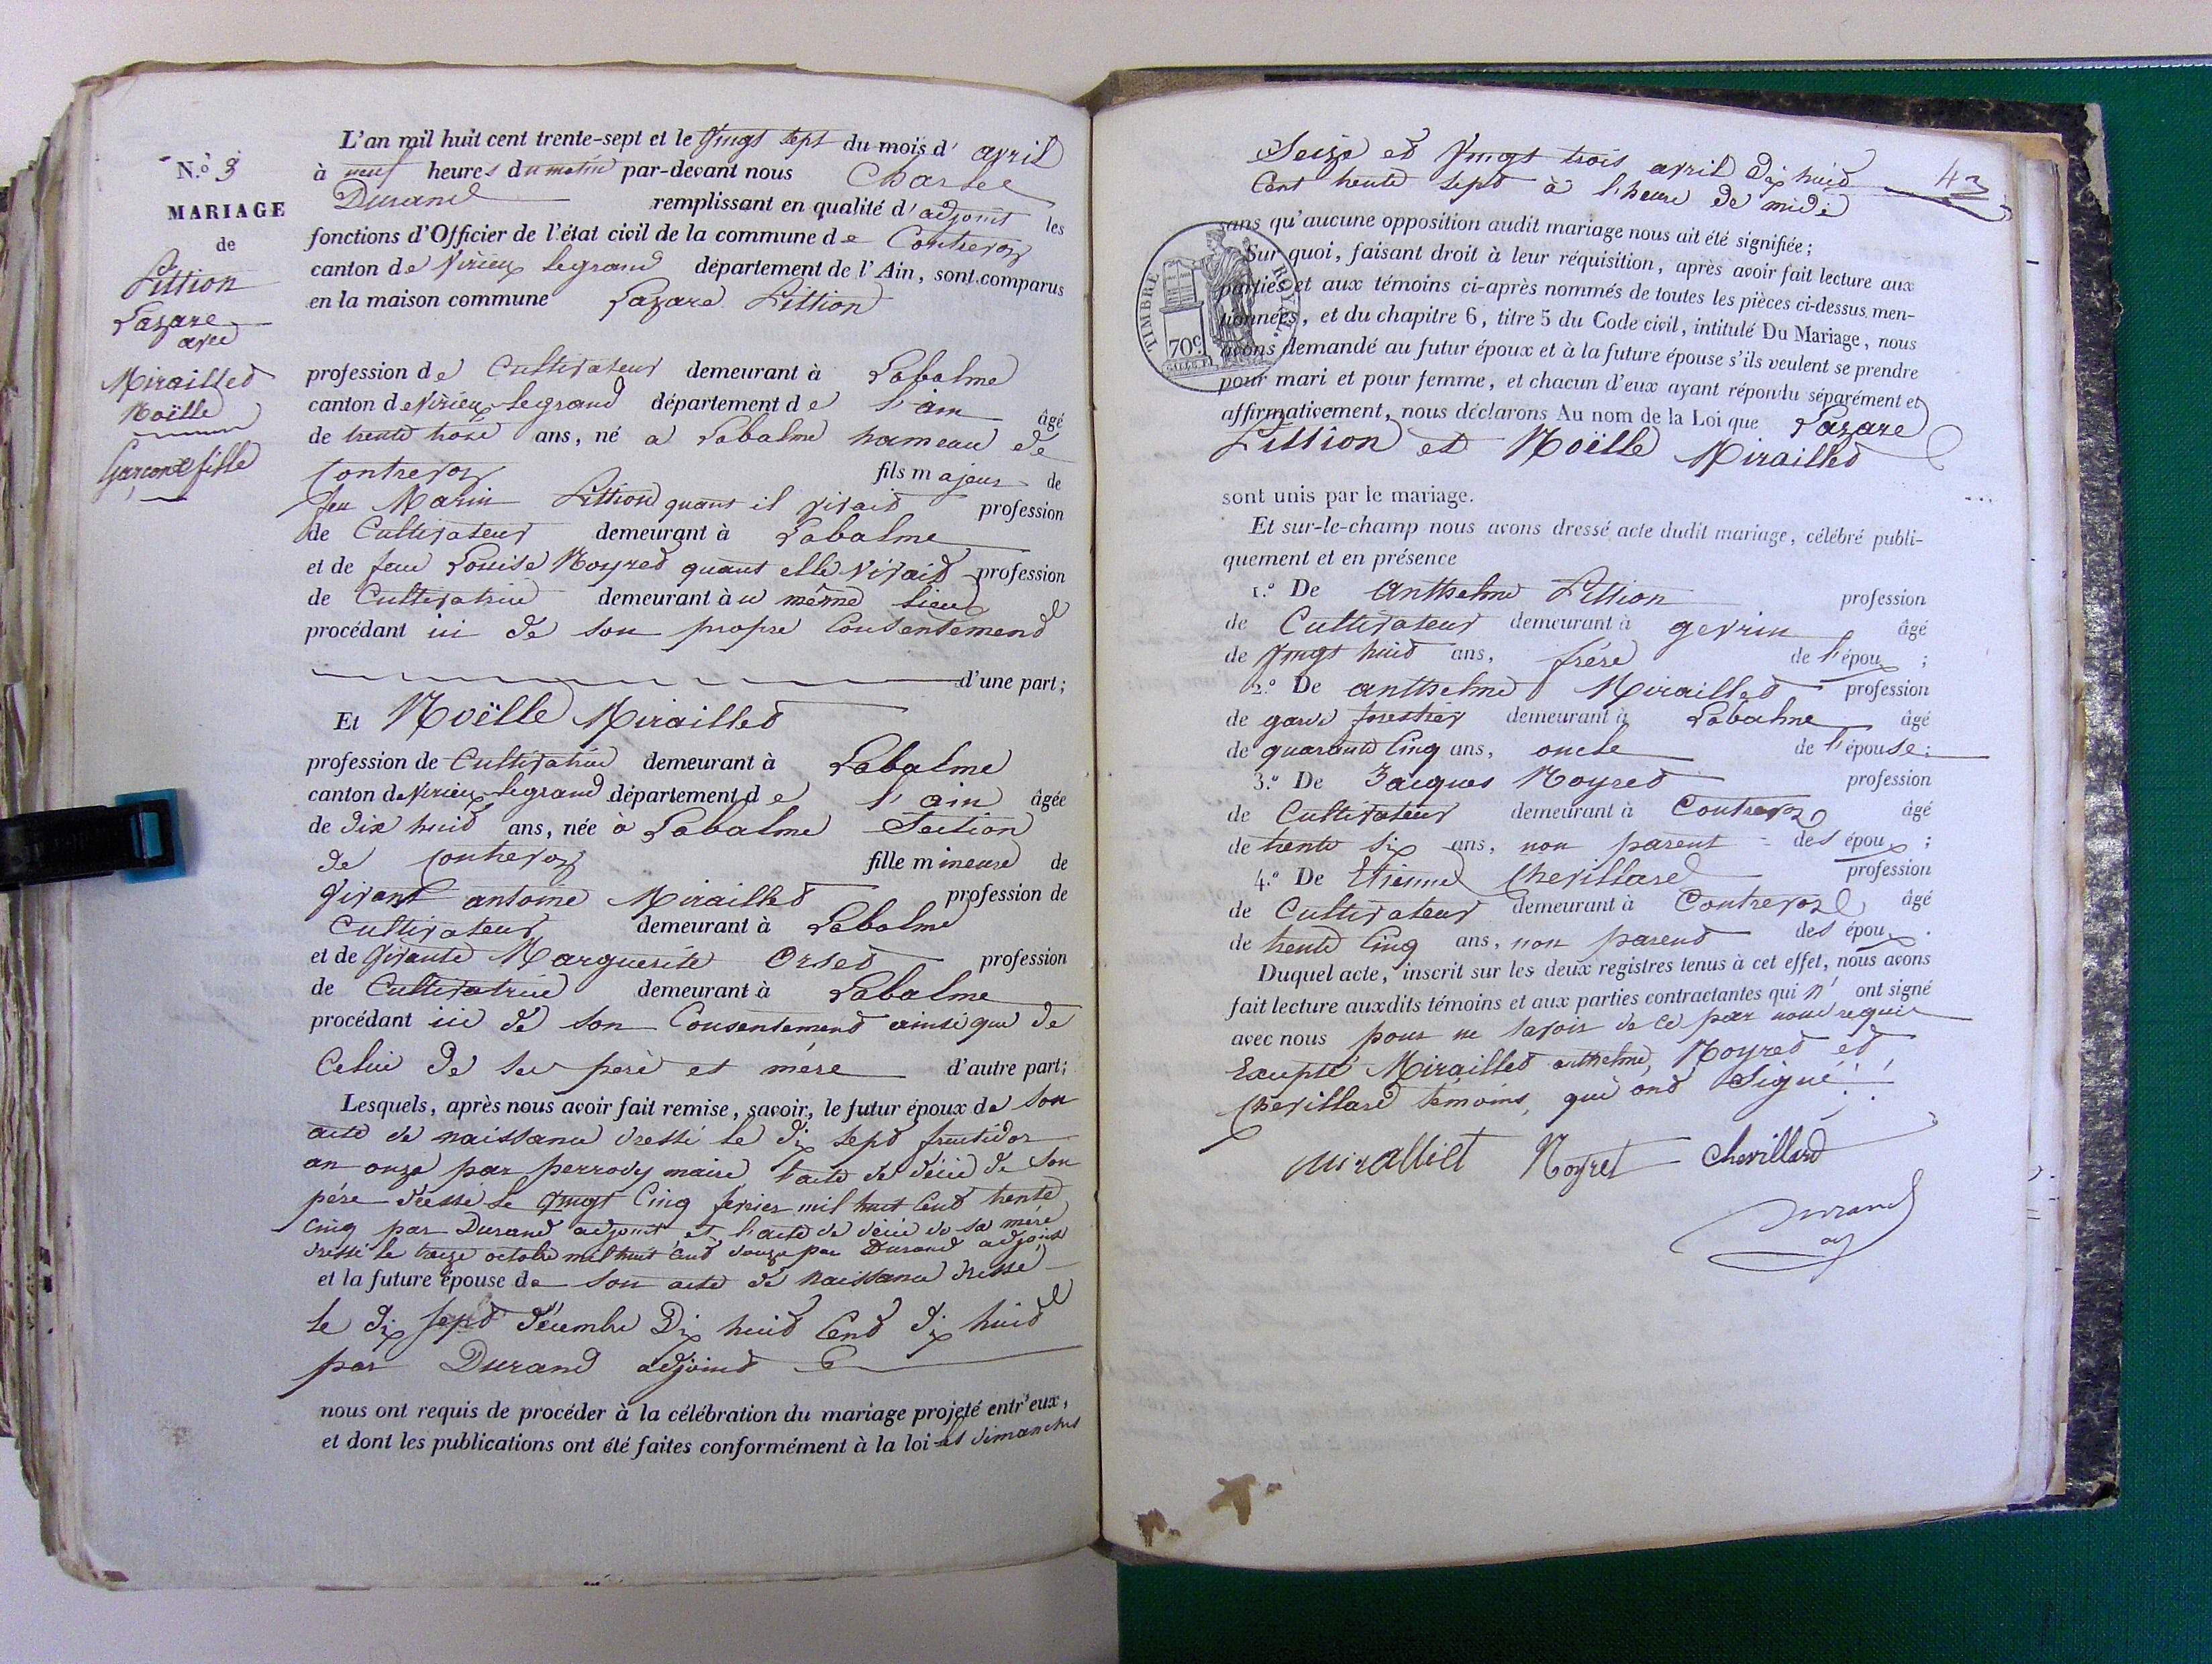 N.º 3
MARIAGE
de
Littion
Lazare
avec
Miraillet
Noëlle
Garçon et fille
L'an mil huit cent trente-sept et le vingt sept du mois d' avril
à neuf heures du matin par-devant nous Charle
Durand remplissant en qualité d'adjoint les
fonctions d'Officier de l'état civil de la commune de Contrevoz
canton de Virieux Legrand département de l'Ain, sont comparus
en la maison commune Lazare Littion
profession de Cultivateur demeurant à Labalme
canton de Virieux Legrand département de l'ain âgé
de trente trois ans, né a Labalme hameau de
Contrevoz fils majeur de
feu Marin Littion quant il vivait profession
de Cultivateur demeurant à Labalme
et de feue Louise Noyret quant elle vivait profession
de Cultivatrice demeurant au même lieu
procédant ici de son propre Consentement
d'une part;
Et Noëlle Miraillet
profession de Cultivatrice demeurant à Labalme
canton de Virieux Legrand département de l'ain âgée
de dix huit ans, née à Labalme Section
de Contrevoz fille mineure de
vivant antoine Miraillet profession de
Cultivateur demeurant à Labalme
et de vivante Marguerite Orset profession
de Cultivatrice demeurant à Labalme
procédant ici de son Consentement ainsi que de
Celui de ses père et mère d'autre part;
Lesquels, après nous avoir fait remise, savoir, le futur époux de son
acte de naissance dressé le dix sept fructidor
an onze par perrody maire l'acte de décés de son
père dressé le vingt Cinq fevrier mil huit Cent trente
cinq par Durand adjoint et l'acte de décés de sa mère
dressé le treize octobre mil huit Cent douze par Durand adjoint
et la future épouse de son acte de naissance dressé
le dix sept décembre Dix huit Cent dix huit
par Durand adjoint
nous ont requis de procéder à la célébration du mariage projeté entr'eux,
et dont les publications ont été faites conformément à la loi les dimanches
43
Seize et vingt trois avril dix huit
Cent trente sept à l'heure de midi
TIMBRE ROYAL
70c
sans qu'aucune opposition audit mariage nous ait été signifiée;
Sur quoi, faisant droit à leur réquisition, après avoir fait lecture aux
parties et aux témoins ci-après nommés de toutes les pièces ci-dessus men-
tionnées, et du chapitre 6, titre 5 du Code civil, intitulé Du Mariage, nous
avons demandé au futur époux et à la future épouse s'ils veulent se prendre
pour mari et pour femme, et chacun d'eux ayant répondu séparément et
affirmativement, nous déclarons Au nom de la Loi que Lazare
Littion et Noëlle Miraillet
sont unis par le mariage.
Et sur-le-champ nous avons dressé acte dudit mariage, célébré publi-
quement et en présence
1.º De Anthelme Littion profession
de Cultivateur demeurant à gevrin âgé
de vingt huit ans, frére de l'époux ;
2.º De anthelme Miraillet profession
de garde forestier demeurant à Labalme âgé
de quarante Cinq ans, oncle de l'épouse;
3.º De Jacques Noyret profession
de Cultivateur demeurant à Contrevoz âgé
de trente six ans, non parent des époux ;
4.º De Etienne Chevillard profession
de Cultivateur demeurant à Contrevoz âgé
de trente Cinq ans, non parent des époux.
Duquel acte, inscrit sur les deux registres tenus à cet effet, nous avons
fait lecture auxdits témoins et aux parties contractantes qui n' ont signé
avec nous pour ne savoir de ce par nous requis
Excepté Miraillet anthelme, Noyret et
Chevillard témoins, qui ont Signé
miralliet Noyret Chevillard
Durand
adj